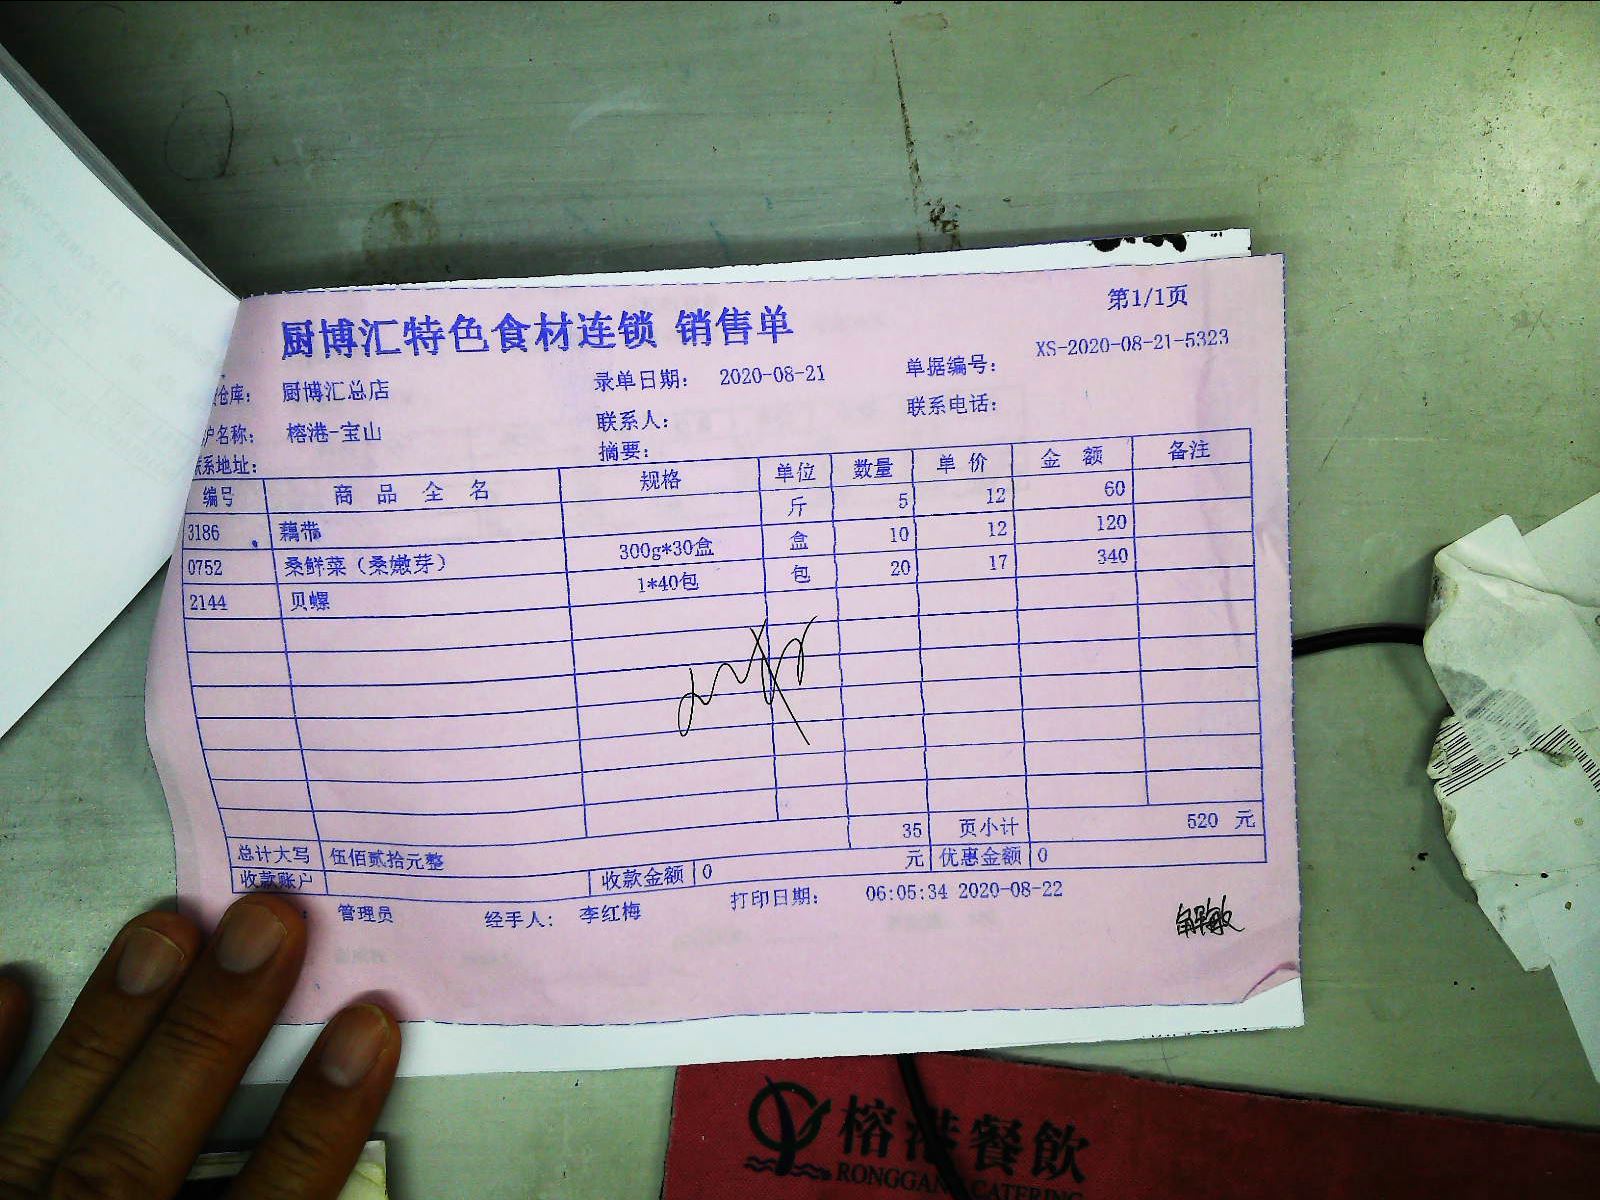 第1/1页
厨博汇特色食材连锁 销售单
仓库： 厨博汇总店 录单日期： 2020-08-21 单据编号： XS-2020-08-21-5323
户名称： 榕港-宝山 联系人： 联系电话：
系地址： 摘要：
编号 商 品 全 名 规格 单位 数量 单 价 金 额 备注
3186 藕带 斤 5 12 60
0752 桑鲜菜（桑嫩芽） 300g*30盒 盒 10 12 120
2144 贝螺 1*40包 包 20 17 340
35 页小计 520 元
总计大写 伍佰贰拾元整
收款账户 收款金额 0 元 优惠金额 0
： 管理员 经手人： 李红梅 打印日期： 06:05:34 2020-08-22
榕港餐飲
RONGGANG CATERING